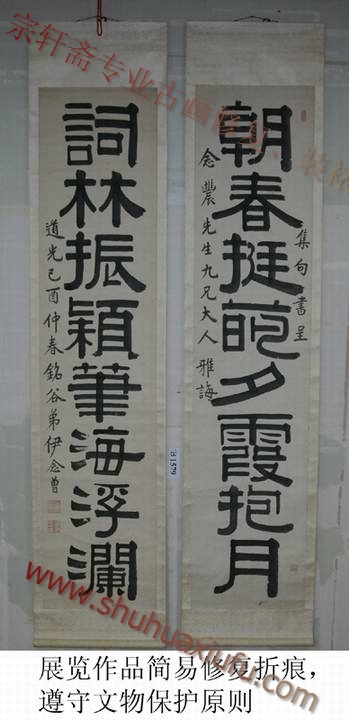 宗轩斋专业古画修复、装裱
集句書呈
朝春挺葩夕霞抱月
念農先生九兄大人雅誨
詞林振穎筆海浮瀾
道光己酉仲春銘谷弟伊念曾
1579
www.shuhuaxiufu.com
展览作品简易修复折痕，
遵守文物保护原则